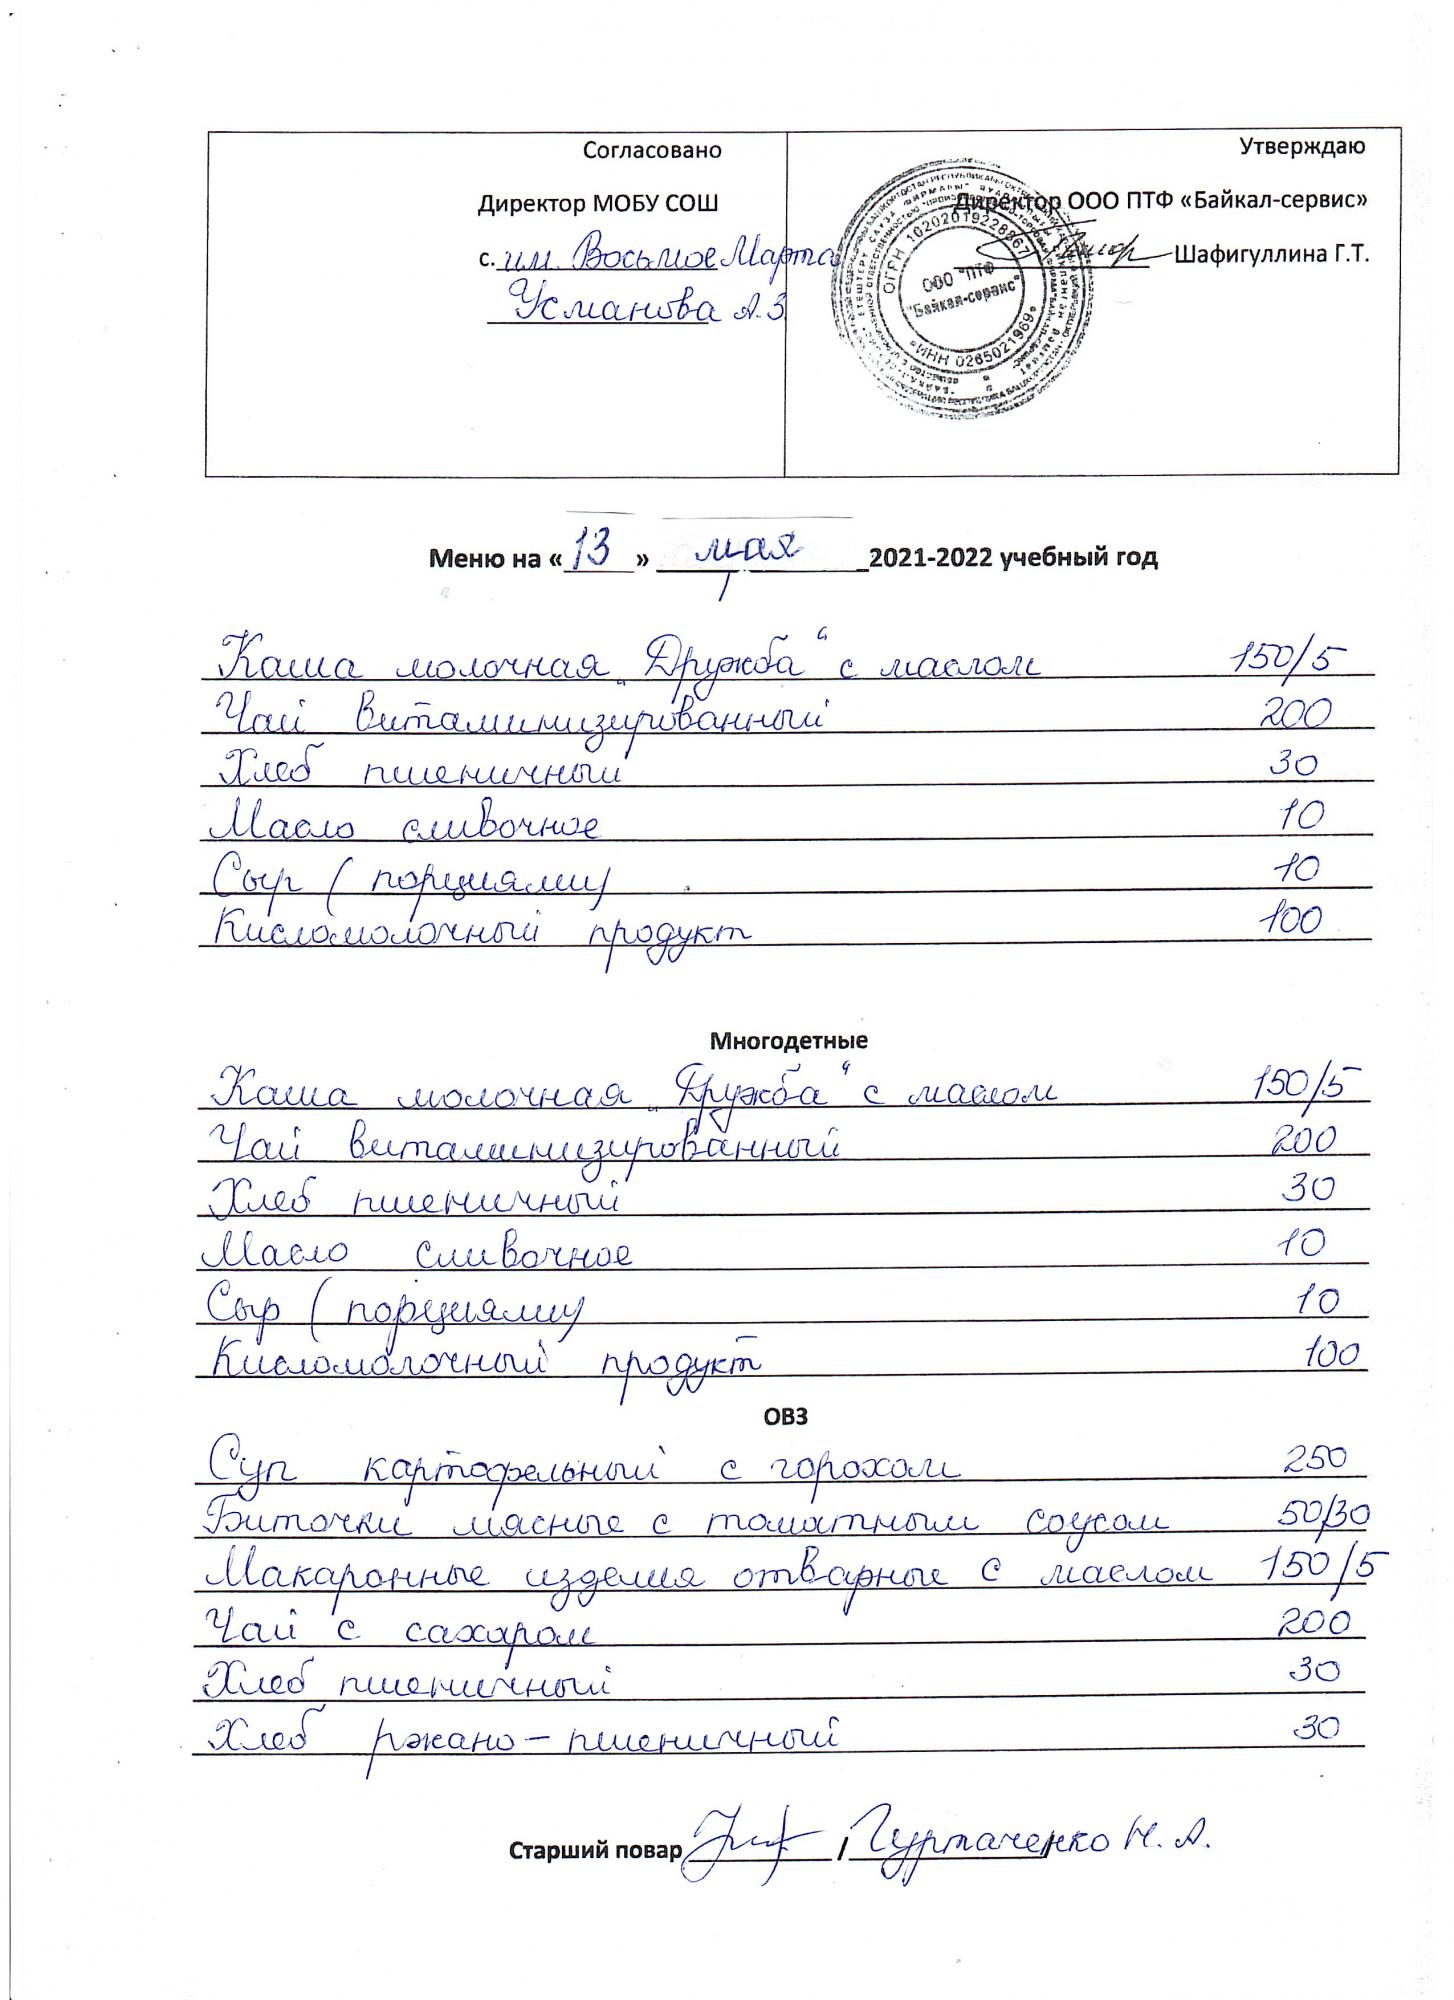 Согласовано
Директор МОБУ СОШ
с. им. Восьмое Марта
Усманова А.З
Утверждаю
Директор ООО ПТФ «Байкал-сервис»
Шафигуллина Г.Т.
ОГРН 1020201922886
ООО "ПТФ
"Байкал-сервис"
ИНН 0265021969
Меню на « 13 » мая 2021-2022 учебный год
Каша молочная „Дружба“ с маслом 150/5
Чай витаминизированный 200
Хлеб пшеничный 30
Масло сливочное 10
Сыр (порциями) 10
Кисломолочный продукт 100
Многодетные
Каша молочная „Дружба“ с маслом 150/5
Чай витаминизированный 200
Хлеб пшеничный 30
Масло сливочное 10
Сыр (порциями) 10
Кисломолочный продукт 100
ОВЗ
Суп картофельный с горохом 250
Биточки мясные с томатным соусом 50/30
Макаронные изделия отварные с маслом 150/5
Чай с сахаром 200
Хлеб пшеничный 30
Хлеб ржано-пшеничный 30
Старший повар / Гуртаченко Н.А. /